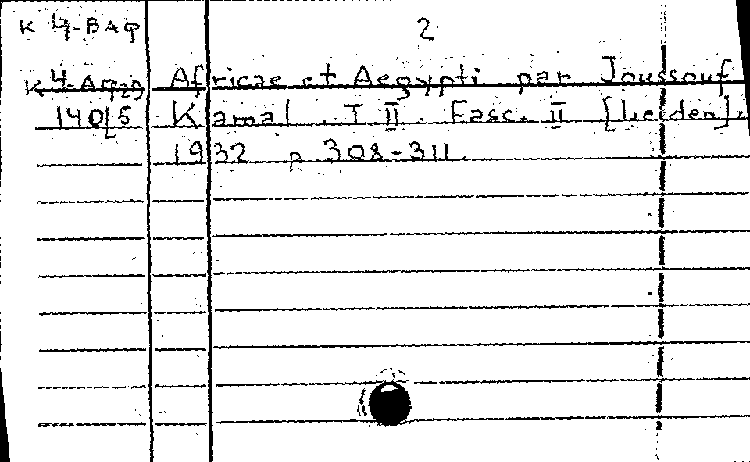 K 4-BAQ
2
Africae et Aegypti par Joussouf
Kamal. T II. Fasc. II [Leiden].
1932 p 308-311.